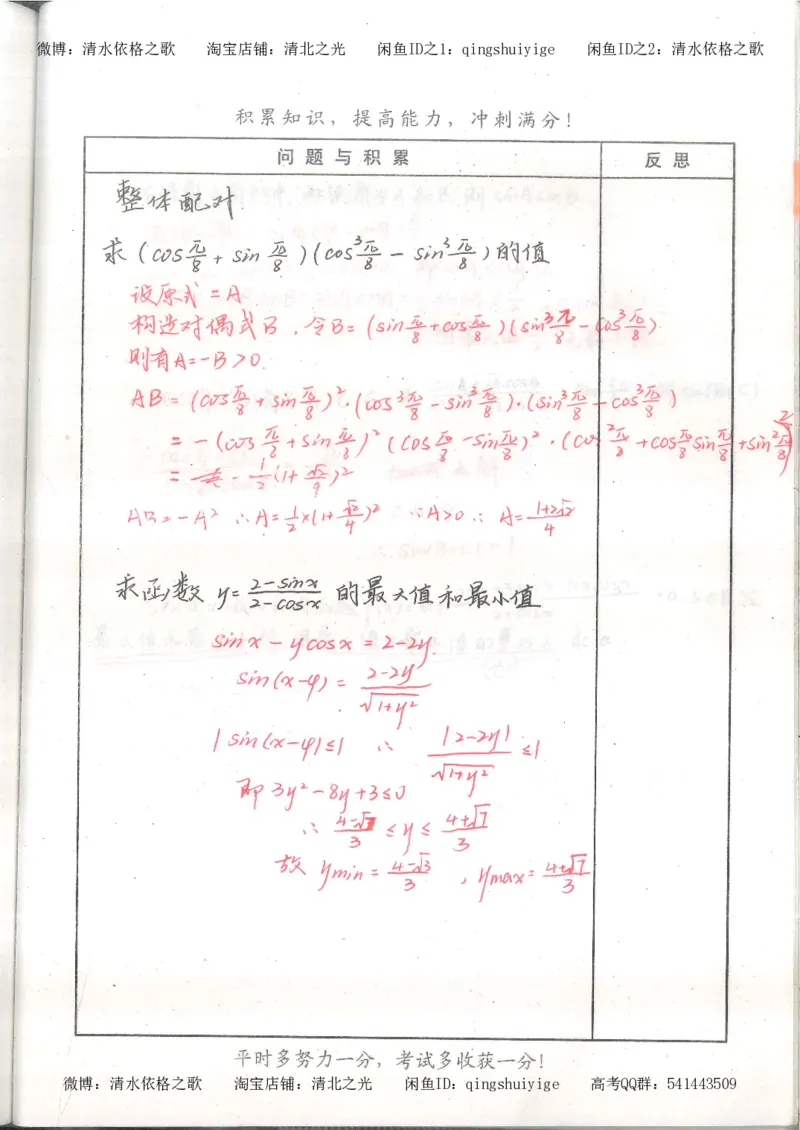 微博：清水依格之歌 淘宝店铺：清北之光 闲鱼ID之1：qingshuiyige 闲鱼ID之2：清水依格之歌
积累知识，提高能力，冲刺满分！
问题与积累 反思
整体配对
求(cos π/8 + sin π/8)(cos³ π/8 - sin³ π/8)的值
设原式=A
构造对偶式B，令B=(sin π/8 + cos π/8)(sin³ π/8 - cos³ π/8)
则有A=-B>0.
AB=(cos π/8 + sin π/8)²·(cos³ π/8 - sin³ π/8)·(sin³ π/8 - cos³ π/8)
=-(cos π/8 + sin π/8)²(cos π/8 - sin π/8)²·(cos² π/8 + cos π/8 sin π/8 + sin² π/8)²
=-1/2(1+√2/4)²
AB=-A² ∴A=1/2×(1+√2/4)² ∵A>0∴ A=(1+2√2)/4
求函数 y=(2-sinx)/(2-cosx) 的最大值和最小值
sinx-ycosx=2-2y.
sin(x-φ)=(2-2y)/√(1+y²)
|sin(x-φ)|≤1 ∴ |2-2y|/√(1+y²) ≤1
即3y²-8y+3≤0
∴ (4-√7)/3 ≤y≤ (4+√7)/3
故 ymin=(4-√3)/3，ymax=(4+√7)/3
平时多努力一分，考试多收获一分！
微博：清水依格之歌 淘宝店铺：清北之光 闲鱼ID：qingshuiyige 高考QQ群：541443509